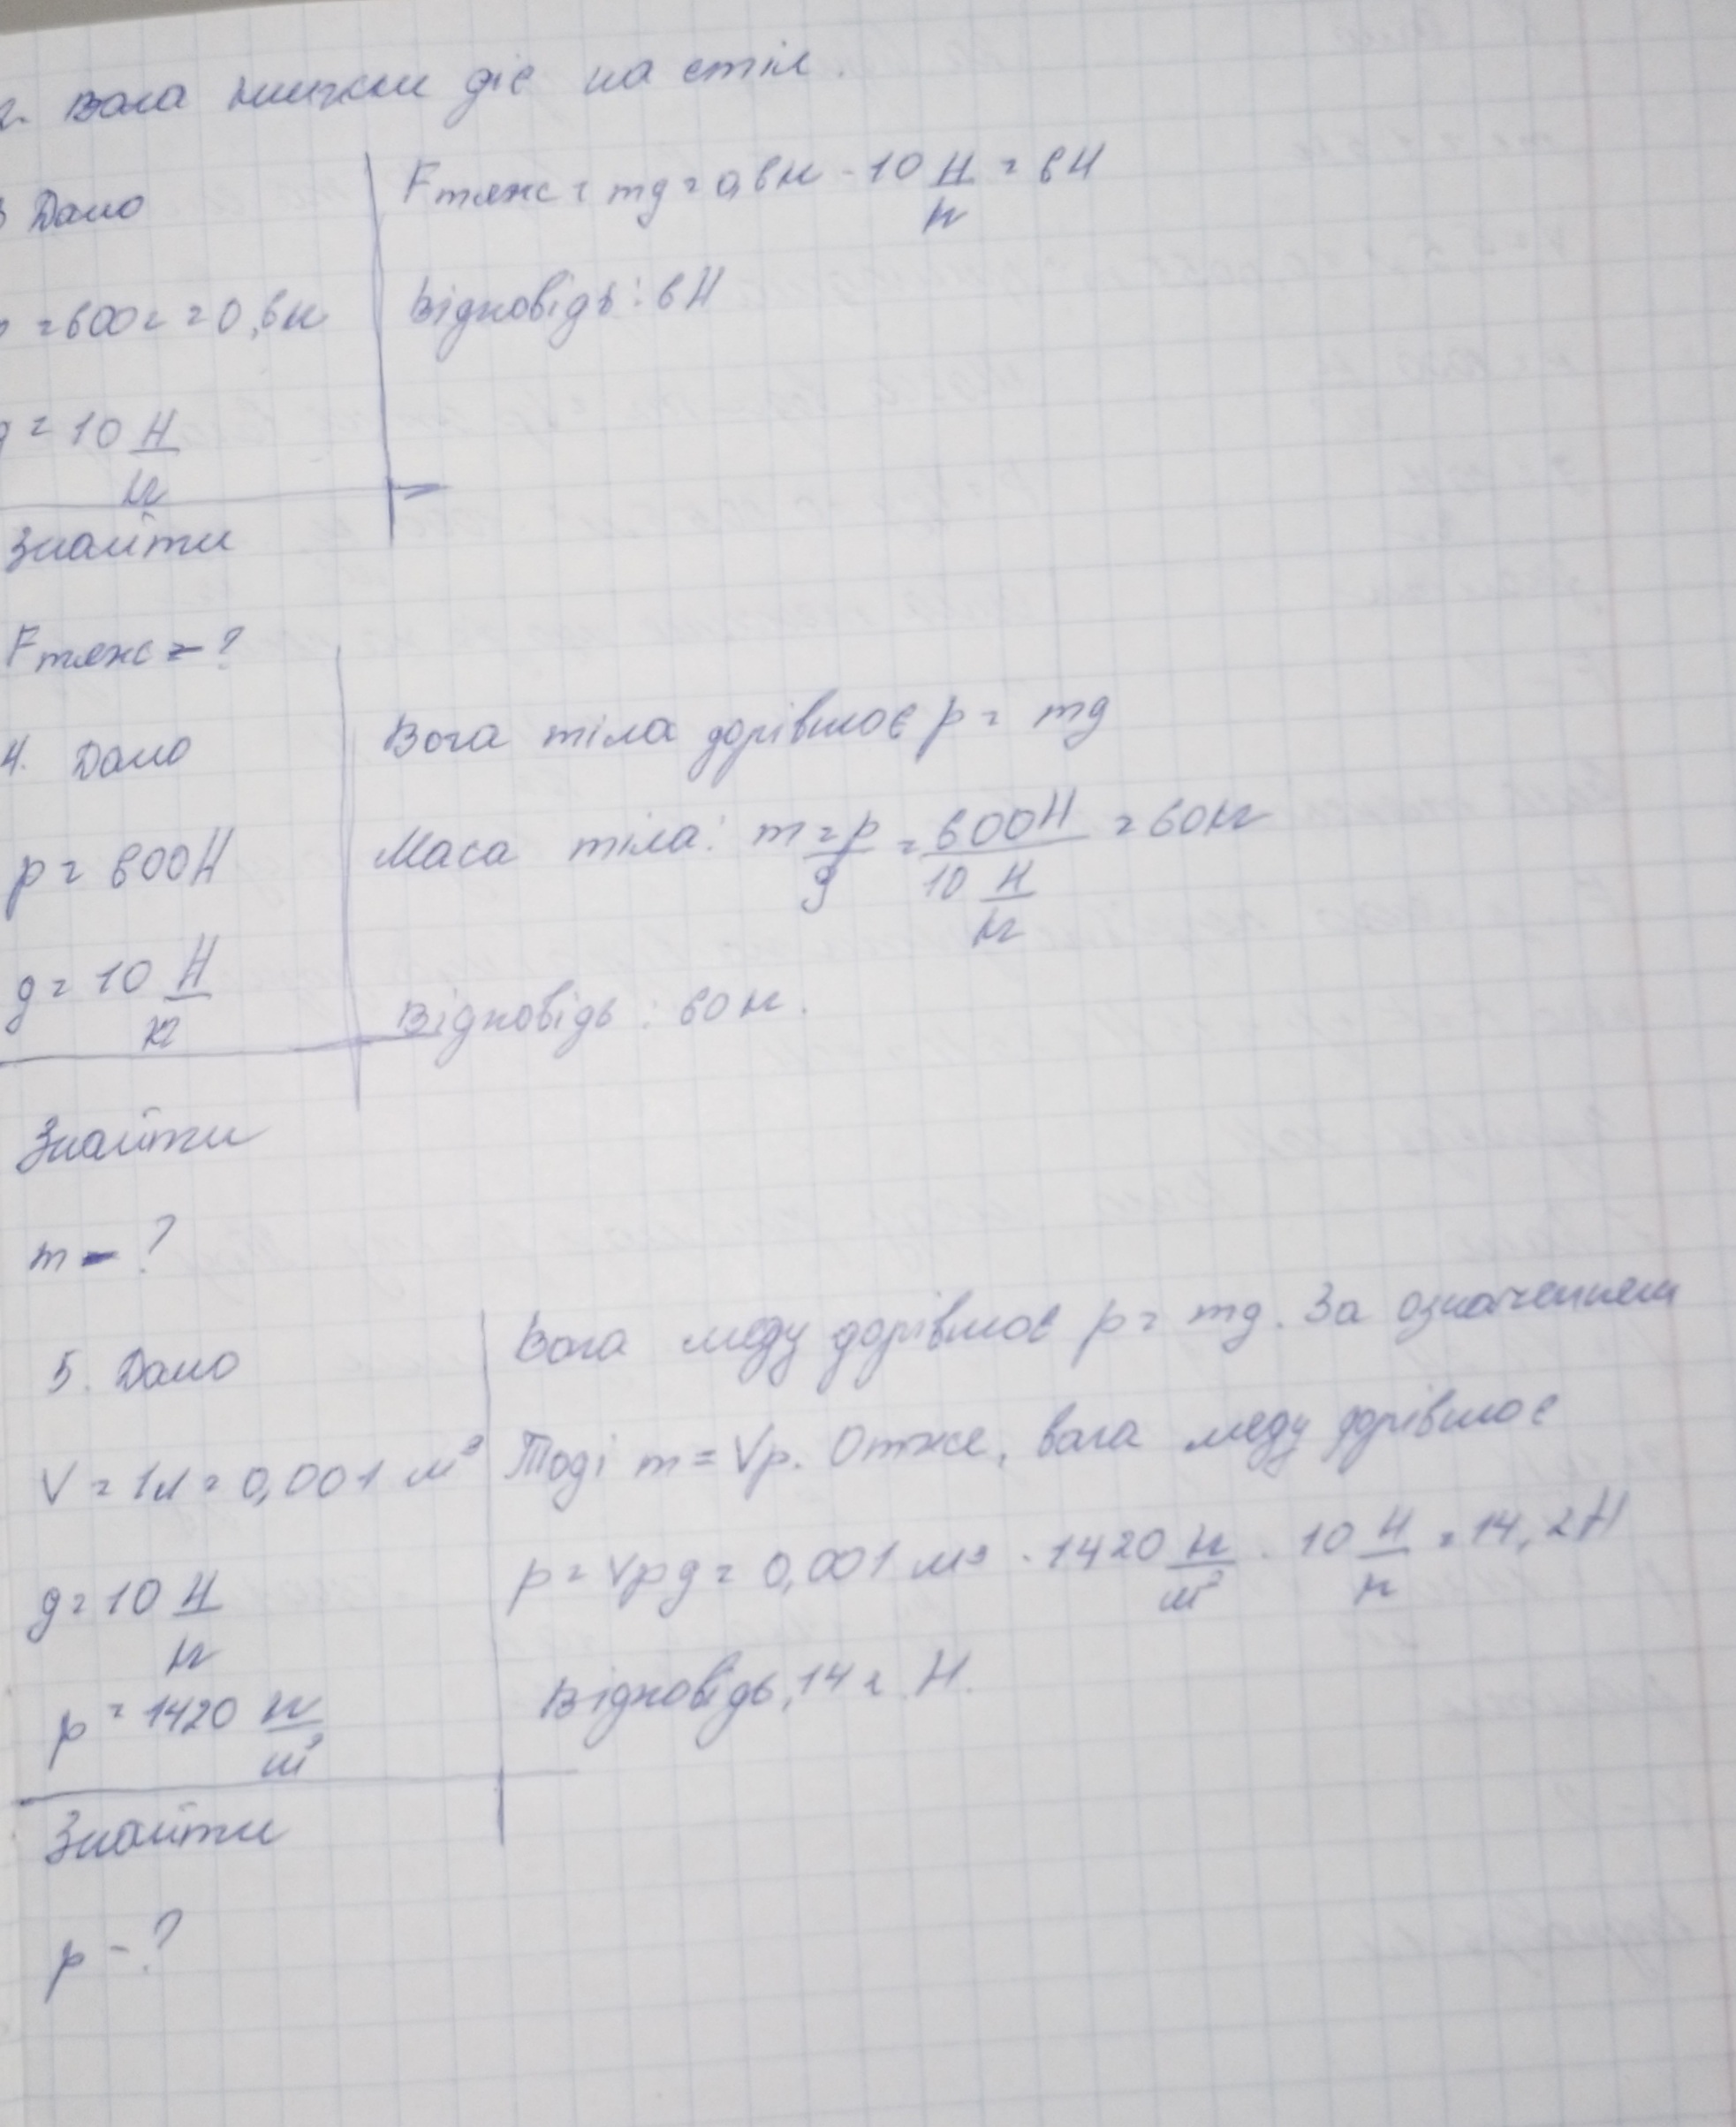 2. Вага книжки діє на стіл.
3 Дано
Fтяж = mg = 0,6кг · 10 Н/кг = 6Н
= 600г = 0,6кг
Відповідь: 6Н
g = 10 Н/кг
Знайти
Fтяж = ?
4. Дано
Вага тіла дорівнює p = mg
p = 600Н
Маса тіла: m = p/g = 600Н/10 Н/кг = 60кг
g = 10 Н/кг
Відповідь: 60кг.
Знайти
m - ?
5. Дано
Вага меду дорівнює p = mg. За означенням
V = 1л = 0,001 м³
Тоді m = Vp. Отже, вага меду дорівнює
g = 10 Н/кг
p = Vpg = 0,001 м³ · 1420 кг/м³ · 10 Н/кг = 14,2Н
p = 1420 кг/м³
Відповідь, 14 2 Н.
Знайти
p - ?